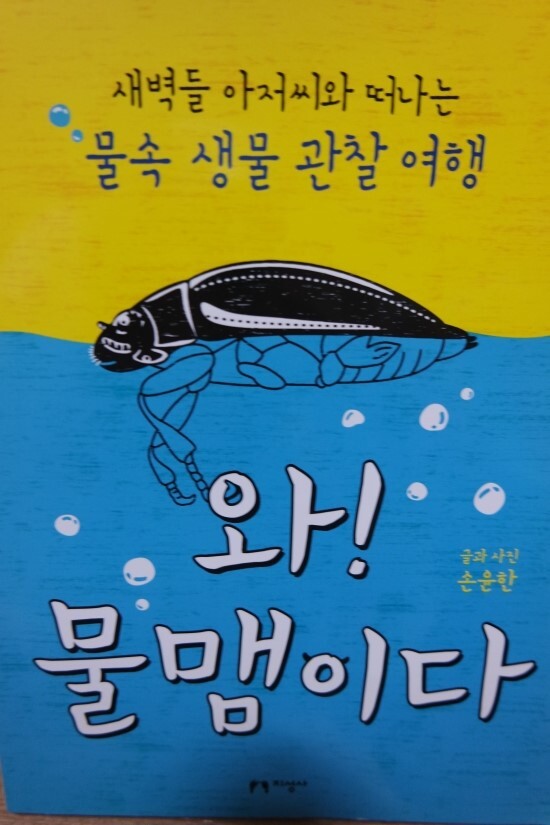 새벽들 아저씨와 떠나는
물속 생물 관찰 여행
와!
글과 사진
손윤한
물맴이다
지성사